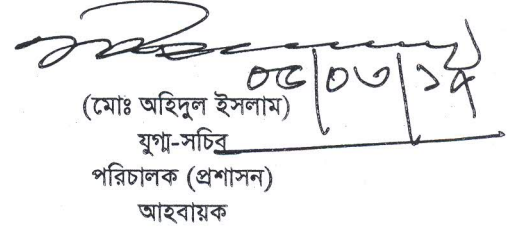 ০৫|০৩|১৫
(মোঃ অহিদুল ইসলাম)
যুগ্ম-সচিব
পরিচালক (প্রশাসন)
আহবায়ক